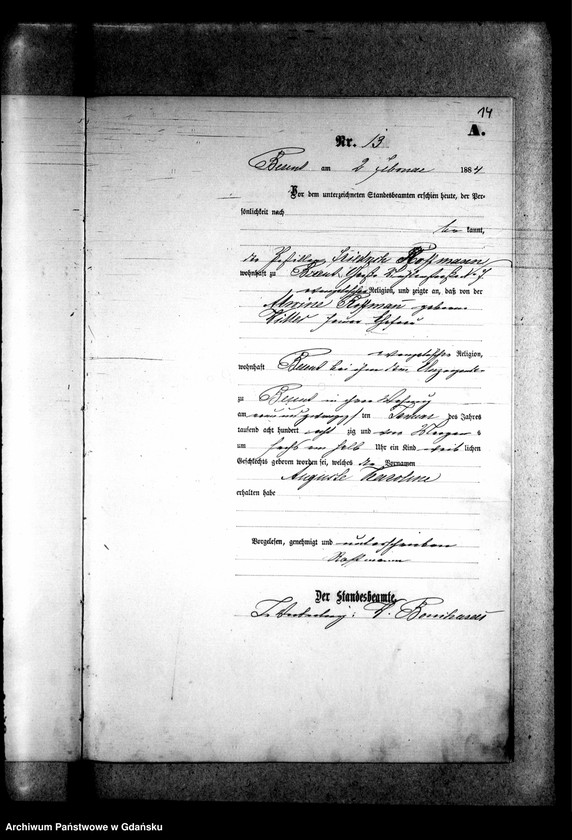 14
A.
Nr. 13
Berent am 2 Februar 1884
Vor dem unterzeichneten Standesbeamten erschien heute, der Per-
sönlichkeit nach
be kannt,
der Friedrich Roßmann
wohnhaft zu Berent
evangelischer Religion, und zeigte an, daß von der
Roßmann geborene
seiner Ehefrau
evangelischer Religion,
wohnhaft Berent bei ihm dem Anzeigenden
zu Berent in ihrer Wohnung
am neun und zwanzig ten Januar des Jahres
tausend acht hundert acht zig und vier Morgen s
um sechs ein halb Uhr ein Kind weib lichen
Geschlechts geboren worden sei, welches die Vornamen
Auguste Karoline
erhalten habe
Vorgelesen, genehmigt und unterschrieben
Roßmann
Der Standesbeamte.
In Vertretung:
Archiwum Państwowe w Gdańsku